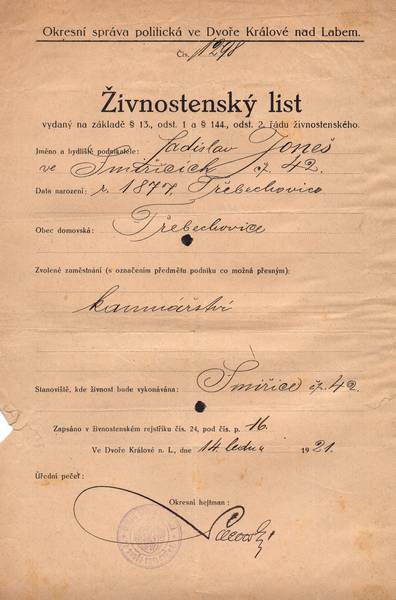 Okresní správa politická ve Dvoře Králové nad Labem.
Čís. 1298
Živnostenský list
vydaný na základě § 13., odst. 1 a § 144., odst. 2. řádu živnostenského.
Jméno a bydliště podnikatele: Ladislav Joneš
ve Smiřicích čp. 42.
Data narození: r. 1877, Třebechovice
Obec domovská: Třebechovice
Zvolené zaměstnání (s označením předmětu podniku co možná přesným):
kamnářství
Stanoviště, kde živnost bude vykonávána: Smiřice čp. 42.
Zapsáno v živnostenském rejstříku čís. 24, pod čís. p. 16.
Ve Dvoře Králové n. L., dne 14. ledna 1921.
Úřední pečeť:
Okresní hejtman: